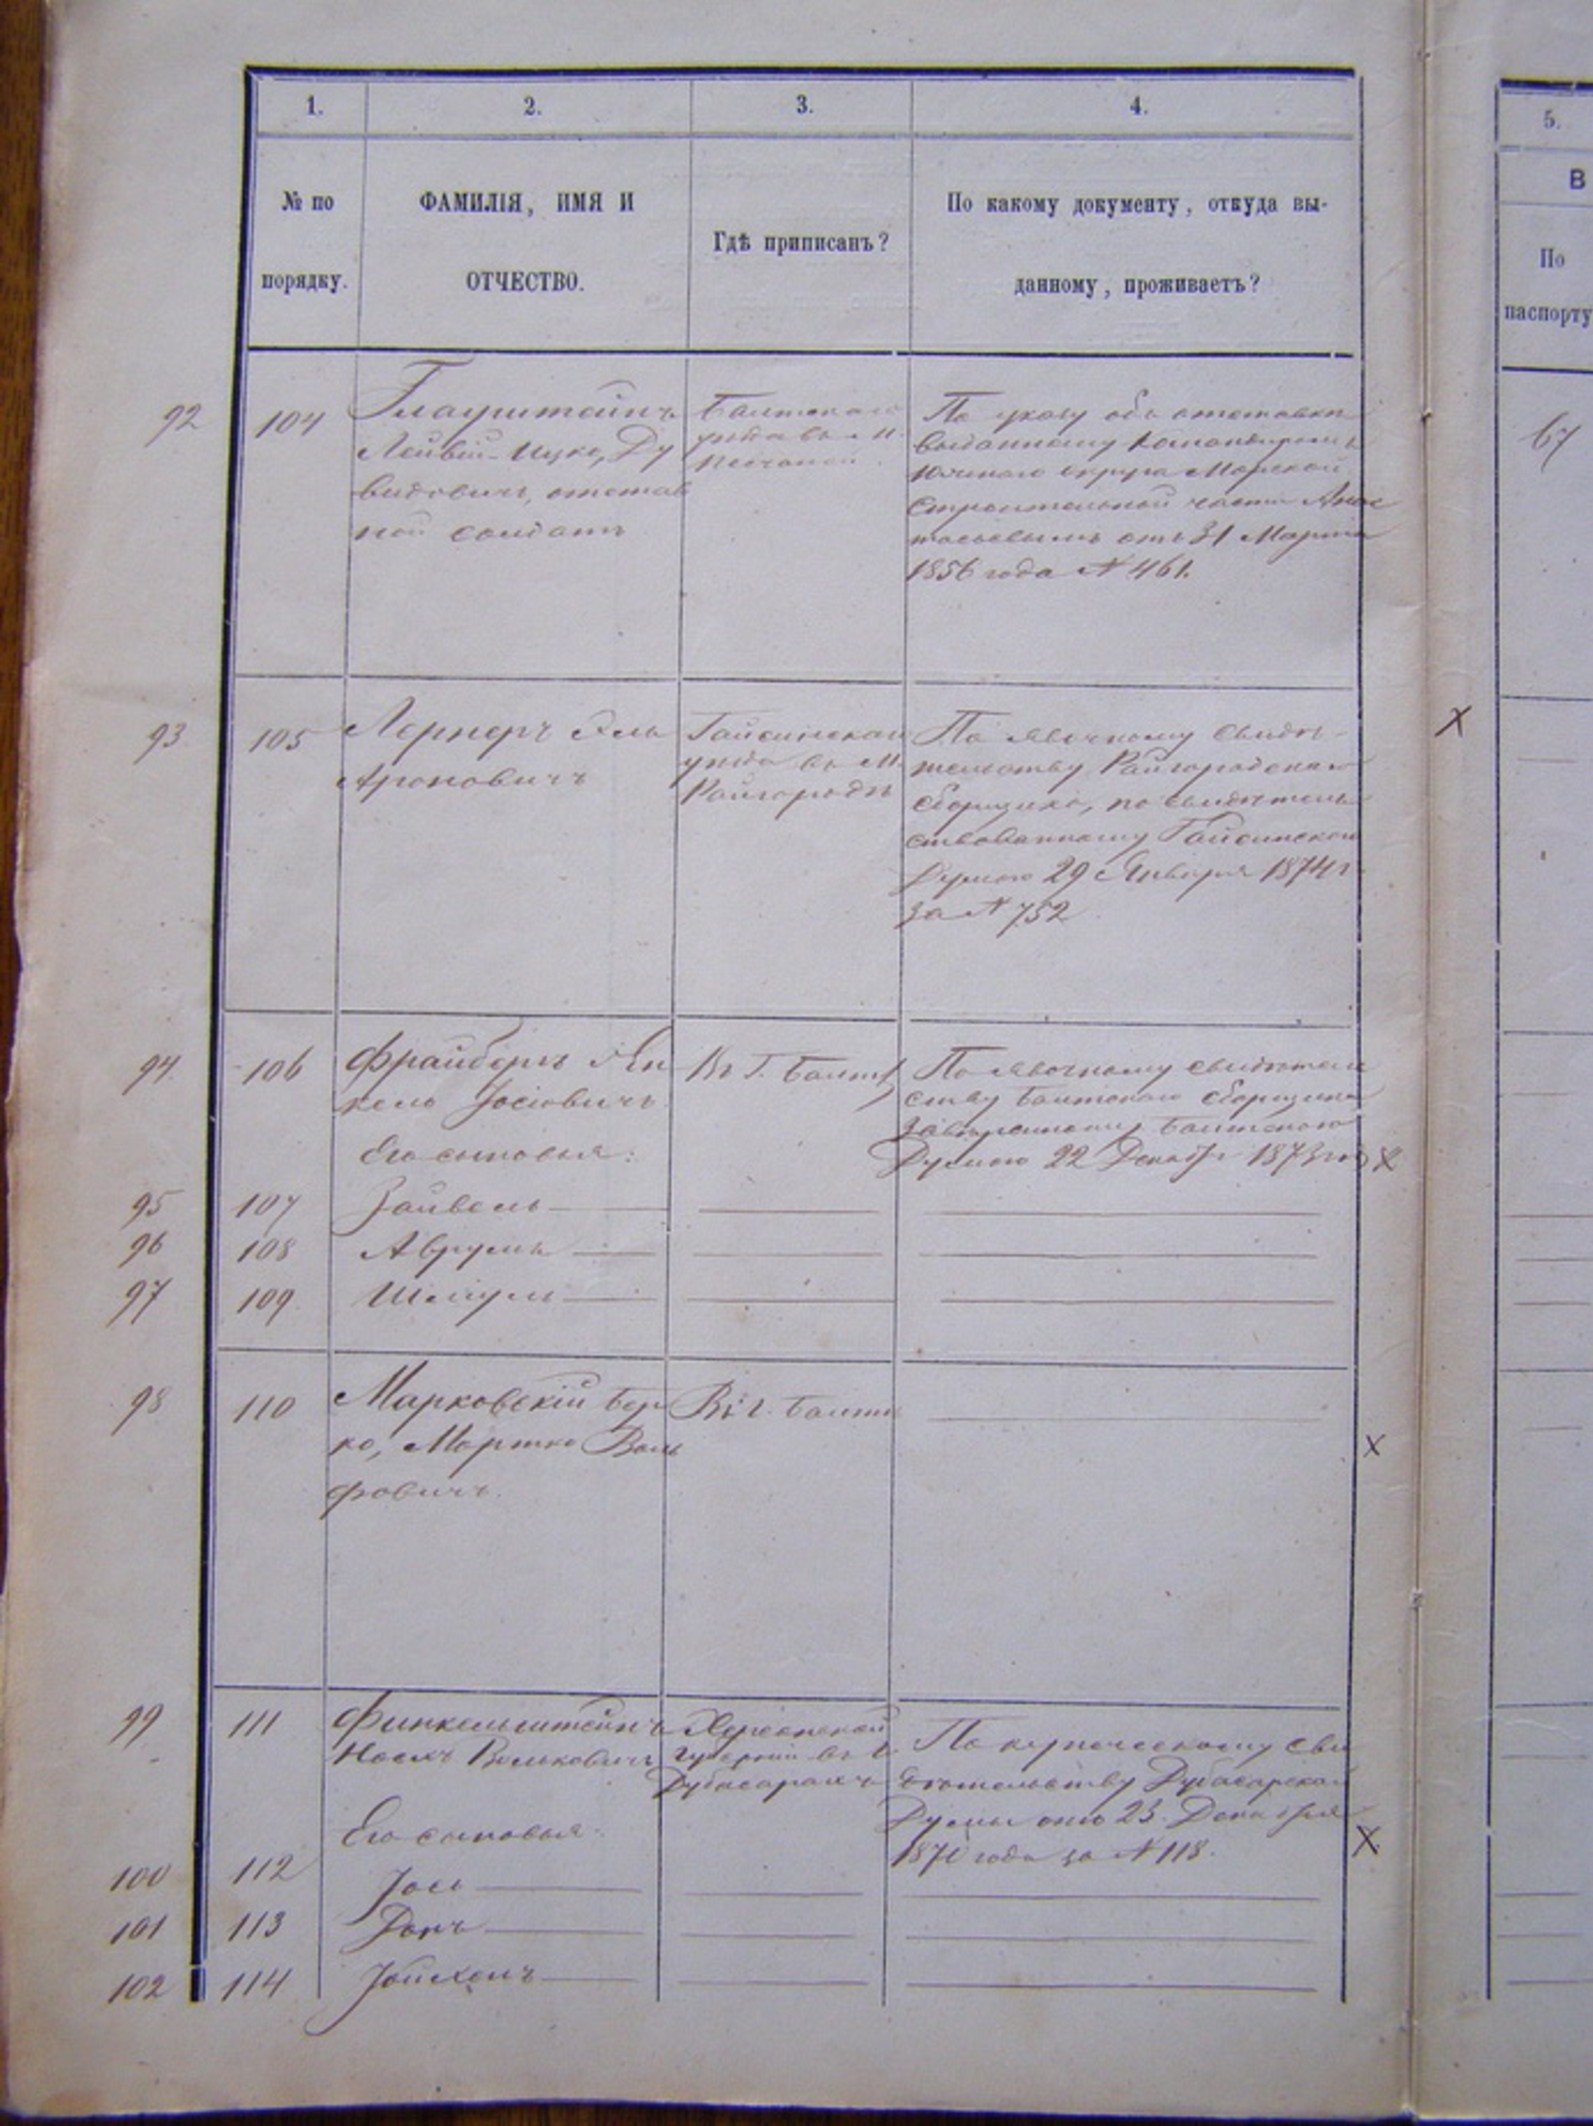 1.
2.
3.
4.
5.
№ по
порядку.
ФАМИЛІЯ, ИМЯ И
ОТЧЕСТВО.
Гдѣ приписанъ?
По какому документу, откуда вы-
данному, проживаетъ?
В
По
паспорту
92
104
Лейвій-Ицко, Ду
видовичъ, отстав
ной солдатъ
Балтскаго
уѣзда въ м.
Песчаной
По указу объ отставкѣ
выданному Командиромъ
Южнаго округа Морской
Строительной части Анас
тасьевымъ отъ 31 Марта
1856 года № 461.
67
93
105
Лернеръ Эль
Ароновичъ
Гайсинскаго
уѣзда въ м.
Райгородѣ
По явочному свидѣ-
тельству Райгородскаго
сборщика, по свидѣтель
ствованному Гайсинскою
Думою 29 Января 1874 г.
за № 752
X
94
106
Фрайбергъ Ян
кель Іосіовичъ
Его сыновья:
Въ г. Балтѣ
По явочному свидѣтель
ству Балтскаго сборщика
завѣренному Балтскою
Думою 22 Декабр 1873 год
X
95
107
Зайвель
96
108
Аврумъ
97
109
Шмуль
98
110
Марковскій Бер
ко, Мортко Воль
фовичъ.
Въ г. Балтѣ
X
99
111
Финкельштейнъ
Носехъ Вольковичъ
Херсонской
губерніи въ г.
Дубасарахъ
По купеческому сви
дѣтельству Дубасарской
Думы отъ 23 Декабря
1871 года за № 118.
X
Его сыновья:
100
112
Іось
101
113
102
114